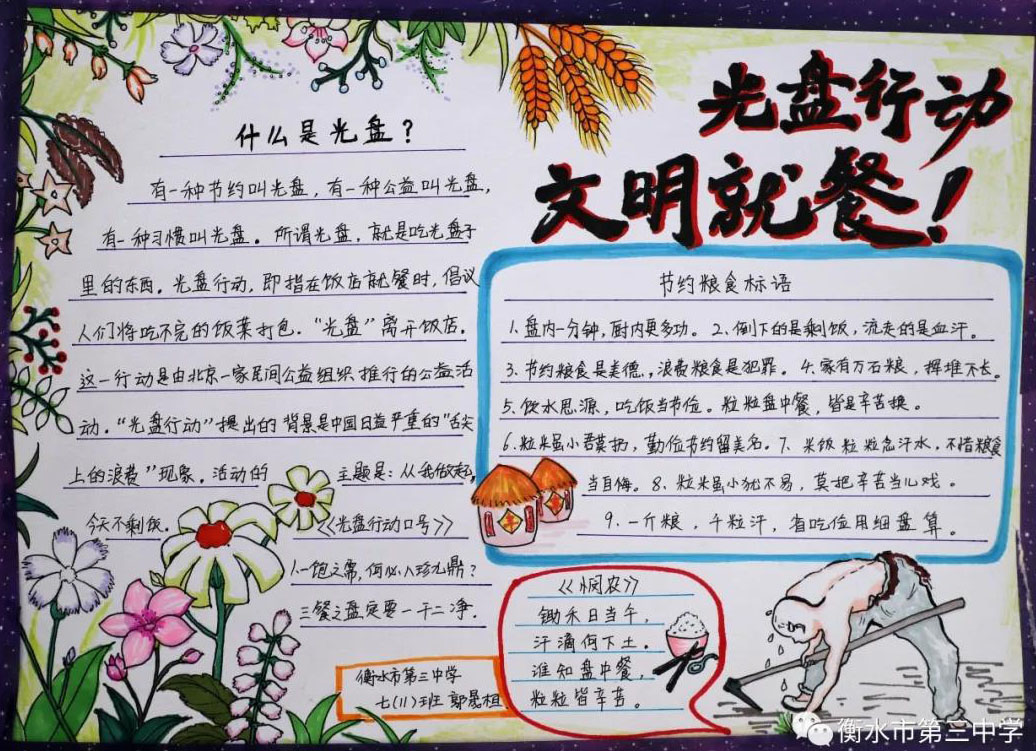 光盘行动
文明就餐!
什么是光盘?
有一种节约叫光盘,有一种公益叫光盘,
有一种习惯叫光盘。所谓光盘,就是吃光盘子
里的东西。光盘行动,即指在饭店就餐时,倡议
人们将吃不完的饭菜打包.“光盘”离开饭店.
这一行动是由北京一家民间公益组织推行的公益活
动.“光盘行动”提出的背景是中国日益严重的“舌尖
上的浪费”现象.活动的 主题是:从我做起,
今天不剩饭.
《光盘行动口号》
1.一饱之需,何必八珍九鼎?
三餐之盘定要一干二净.
衡水市第三中学
七(11)班 郭思桓
节约粮食标语
1.盘内一分钟,厨内更多功. 2、倒下的是剩饭,流走的是血汗.
3.节约粮食是美德,浪费粮食是犯罪. 4.家有万石粮,挥堆不长.
5.饮水思源,吃饭当节位。粒粒盘中餐,皆是辛苦换.
6.粒米虽小君莫扔,勤位节约留美名. 7、米饭粒粒念汗水.不惜粮食
当自悔。8、粒米虽小犹不易,莫把辛苦当儿戏.
9、一斤粮,千粒汗,省吃位用细盘算.
《悯农》
锄禾日当午,
汗滴何下土。
谁知盘中餐,
粒粒皆辛苦。
衡水市第三中学